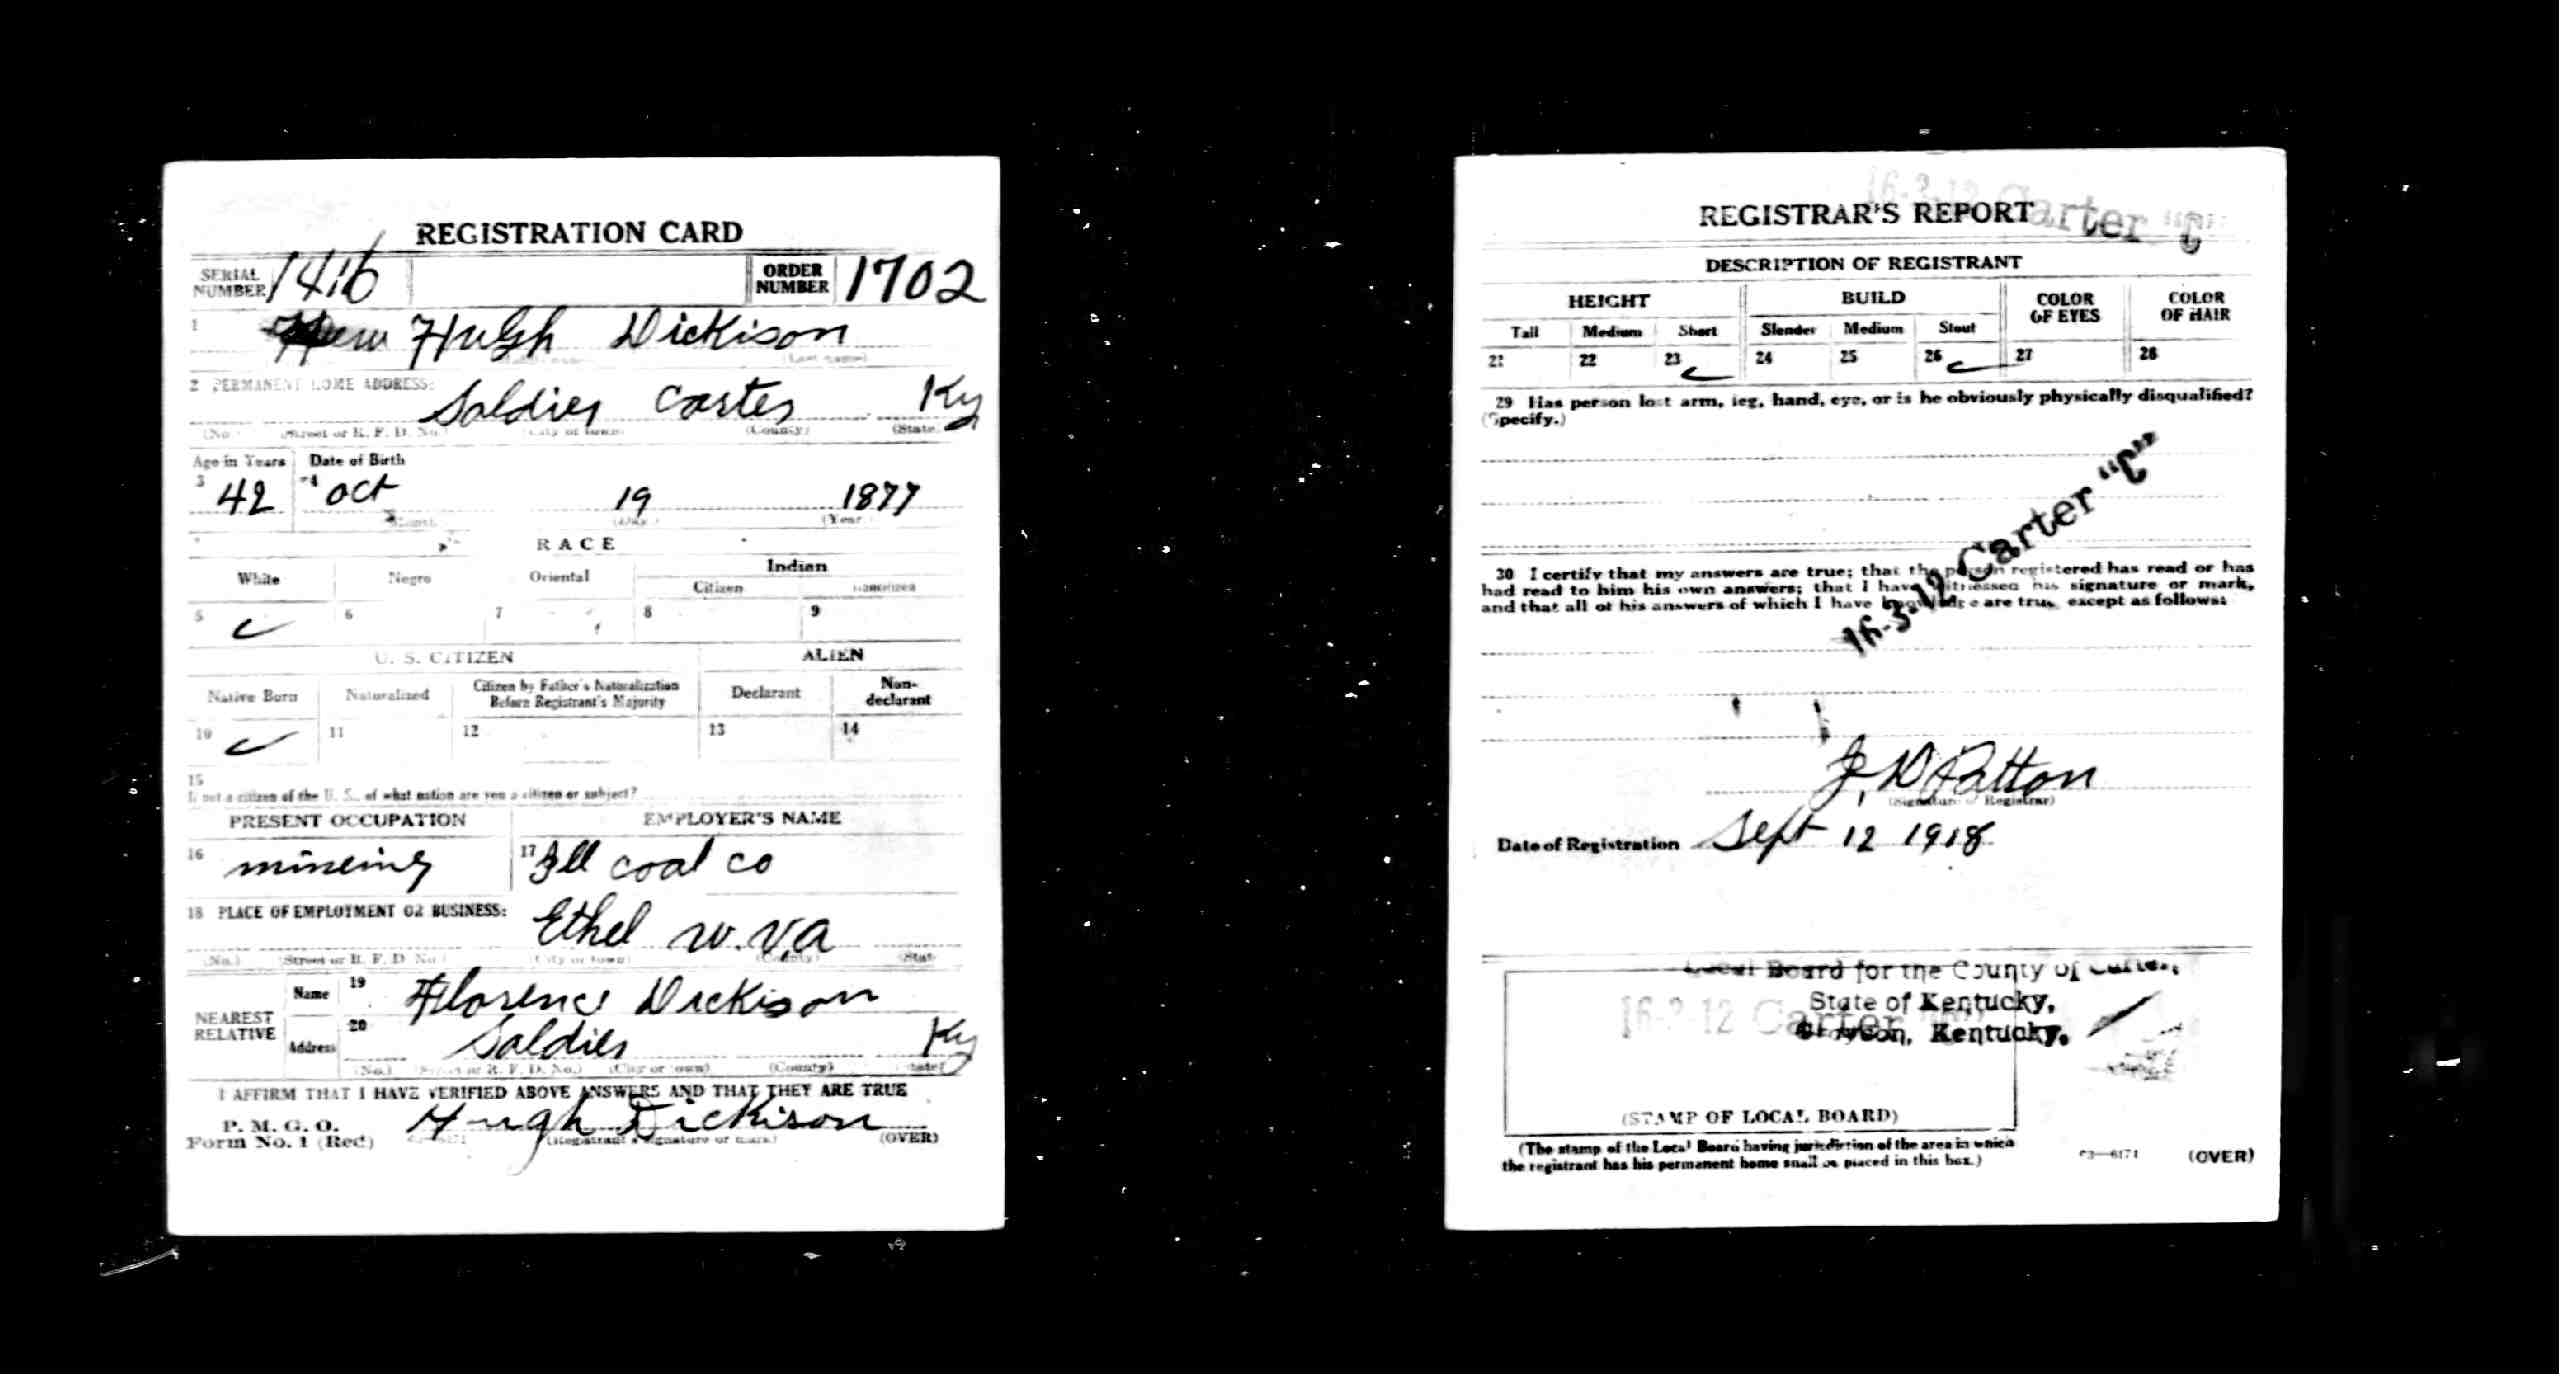 REGISTRATION CARD
SERIAL NUMBER 1416 ORDER NUMBER 1702
1 Hugh Dickison
(Last name)
2 PERMANENT HOME ADDRESS:
Soldier Carter Ky
(No.) (Street or R. F. D. No.) (City or town) (County) (State)
Age in Years Date of Birth
3 42 4 Oct 19 1877
(Month) (Day) (Year)
RACE
White Negro Oriental Indian
Citizen Noncitizen
5 6 7 8 9
U. S. CITIZEN ALIEN
Native Born Naturalized Citizen by Father's Naturalization Before Registrant's Majority Declarant Non-declarant
10 11 12 13 14
15
If not a citizen of the U. S., of what nation are you a citizen or subject?
PRESENT OCCUPATION EMPLOYER'S NAME
16 mineing 17 coal co
18 PLACE OF EMPLOYMENT OR BUSINESS:
Ethel W.Va
(No.) (Street or R. F. D. No.) (City or town) (County) (State)
NEAREST RELATIVE
Name 19 Florence Dickison
Address 20 Soldier Ky
(No.) (Street or R. F. D. No.) (City or town) (County) (State)
I AFFIRM THAT I HAVE VERIFIED ABOVE ANSWERS AND THAT THEY ARE TRUE
P. M. G. O.
Form No. 1 (Red) Hugh Dickison (OVER)
(Registrant's signature or mark)
16-3-12 Carter "C"
REGISTRAR'S REPORT
DESCRIPTION OF REGISTRANT
HEIGHT BUILD COLOR OF EYES COLOR OF HAIR
Tall Medium Short Slender Medium Stout
21 22 23 24 25 26 27 28
29 Has person lost arm, leg, hand, eye, or is he obviously physically disqualified?
(Specify.)
16-3-12 Carter "C"
30 I certify that my answers are true; that the person registered has read or has
had read to him his own answers; that I have witnessed his signature or mark,
and that all of his answers of which I have knowledge are true, except as follows:
J. D. Patton
(Signature of Registrar)
Date of Registration Sept 12 1918
Local Board for the County of Carter,
State of Kentucky,
Grayson, Kentucky.
16-3-12 Carter
(STAMP OF LOCAL BOARD)
(The stamp of the Local Board having jurisdiction of the area in which
the registrant has his permanent home shall be placed in this box.)
03—6171 (OVER)